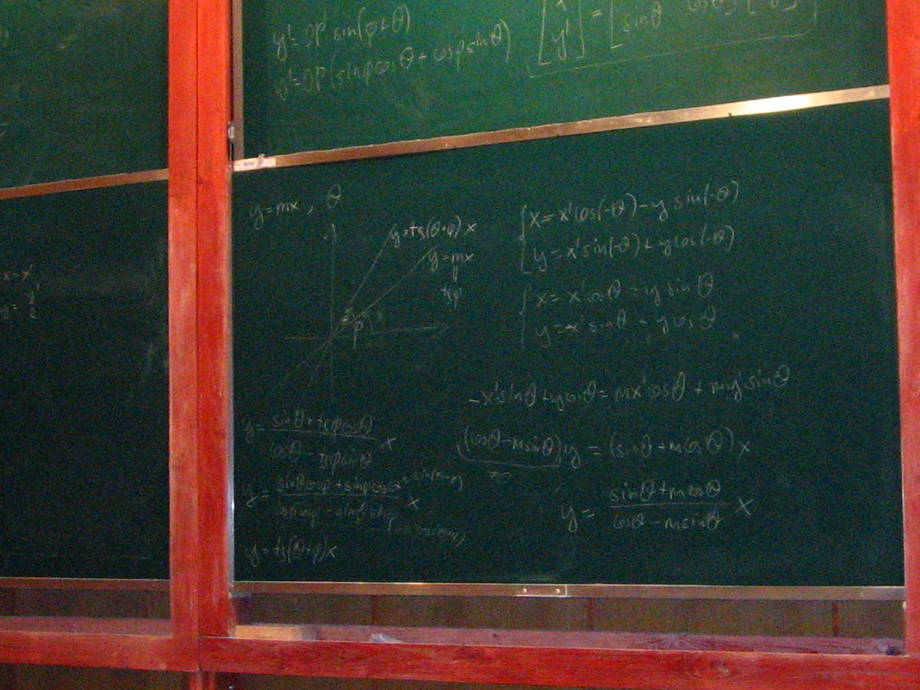 y'=OP' sin(φ+θ)
y'=OP(sinφcosθ + cosφsinθ)
y' = sinθ
y=mx, θ
y=tg(θ+φ)x
y=mx
tgφ
φ
x=x'cos(-θ)-y sin(-θ)
y=x'sin(-θ)+ycos(-θ)
x=x'cosθ+y sinθ
y=-x'sinθ+ycosθ
x=x'
y=y'/2
-x'sinθ+ycosθ=mx'cosθ+my'sinθ
(cosθ-msinθ)y=(sinθ+mcosθ)x
≠0
y=(sinθ+mcosθ)/(cosθ-msinθ) x
y=(sinθ+tgφcosθ)/(cosθ-tgφsinθ) x
y=(sinθcosφ+sinφcosθ)/ x
y=tg(θ+φ)x